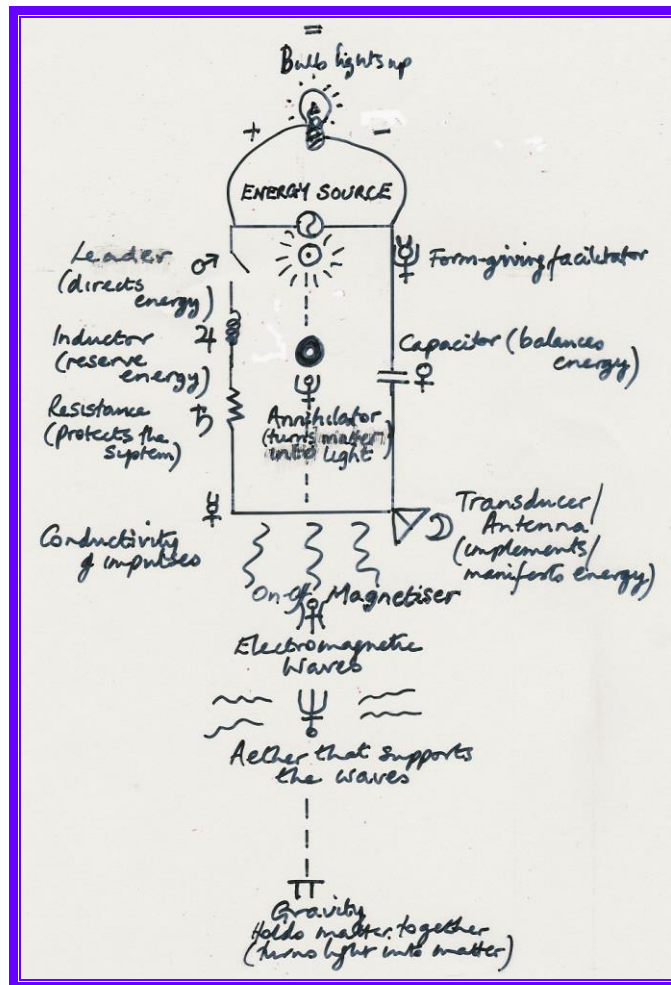 =
Bulb lights up
+ −
ENERGY SOURCE
Leader
(directs
energy)
Form-giving facilitator
Inductor
(reserve
energy)
Capacitor (balances
energy)
Resistance
(protects the
system)
Annihilator
(turns matter
into light
Conductivity
of impulses
Transducer/
Antenna
(implements/
manifests energy)
On-Off Magnetiser
Electromagnetic
Waves
Aether that supports
the waves
Gravity
Holds matter together
(turns light into matter)